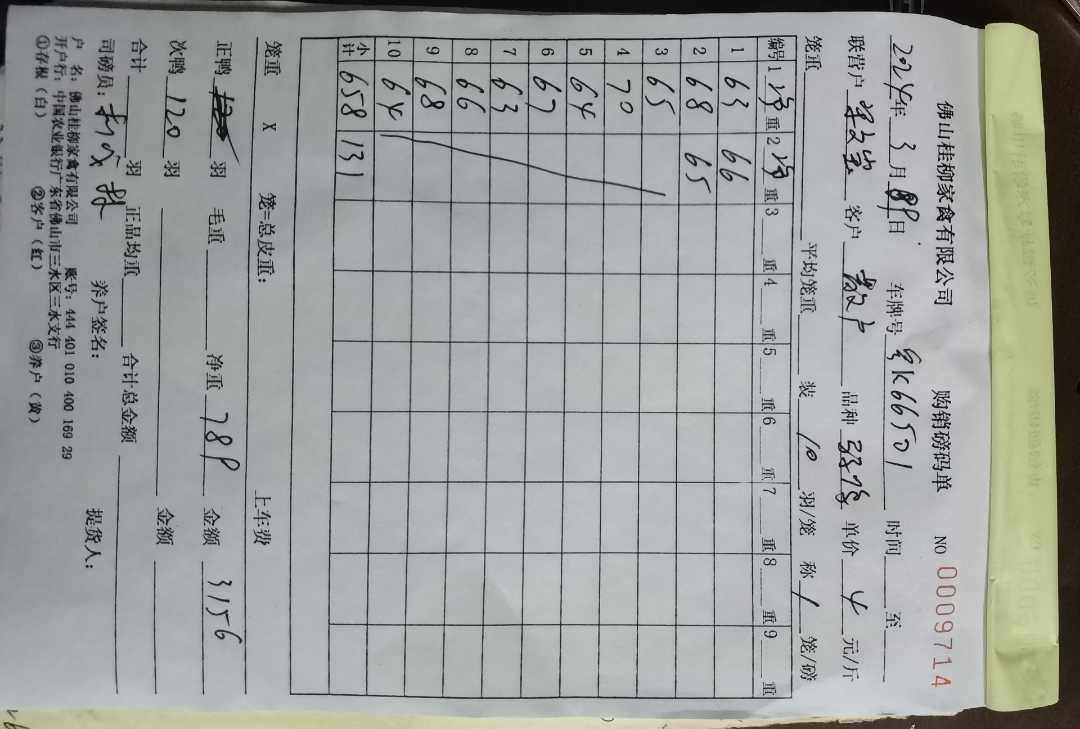 佛山桂柳家禽有限公司 购销磅码单 NO 0009714
2024年3月 日 车牌号 K66501 时间 至
联营户 客户 散户 品种 单价 4 元/斤
笼重 平均笼重 装 10 羽/笼 称 1 笼/磅
编号 1净重 2净重 3 重 4 重 5 重 6 重 7 重 8 重 9 重
1 63 66
2 68 65
3 65
4 70
5 64
6 67
7 63
8 66
9 68
10 64
小计 658 131
笼重 X 笼=总皮重: 上车费
正鸭 羽 毛重 净重 789 金额 3156
次鸭 120 羽 金额
合计 羽 正品均重 合计总金额
司磅员: 养户签名: 提货人:
户 名: 佛山桂柳家禽有限公司 账号: 444 401 010 400 169 29
开户行: 中国农业银行广东省佛山市三水区三水支行
①存根(白) ②客户(红) ③养户(黄)